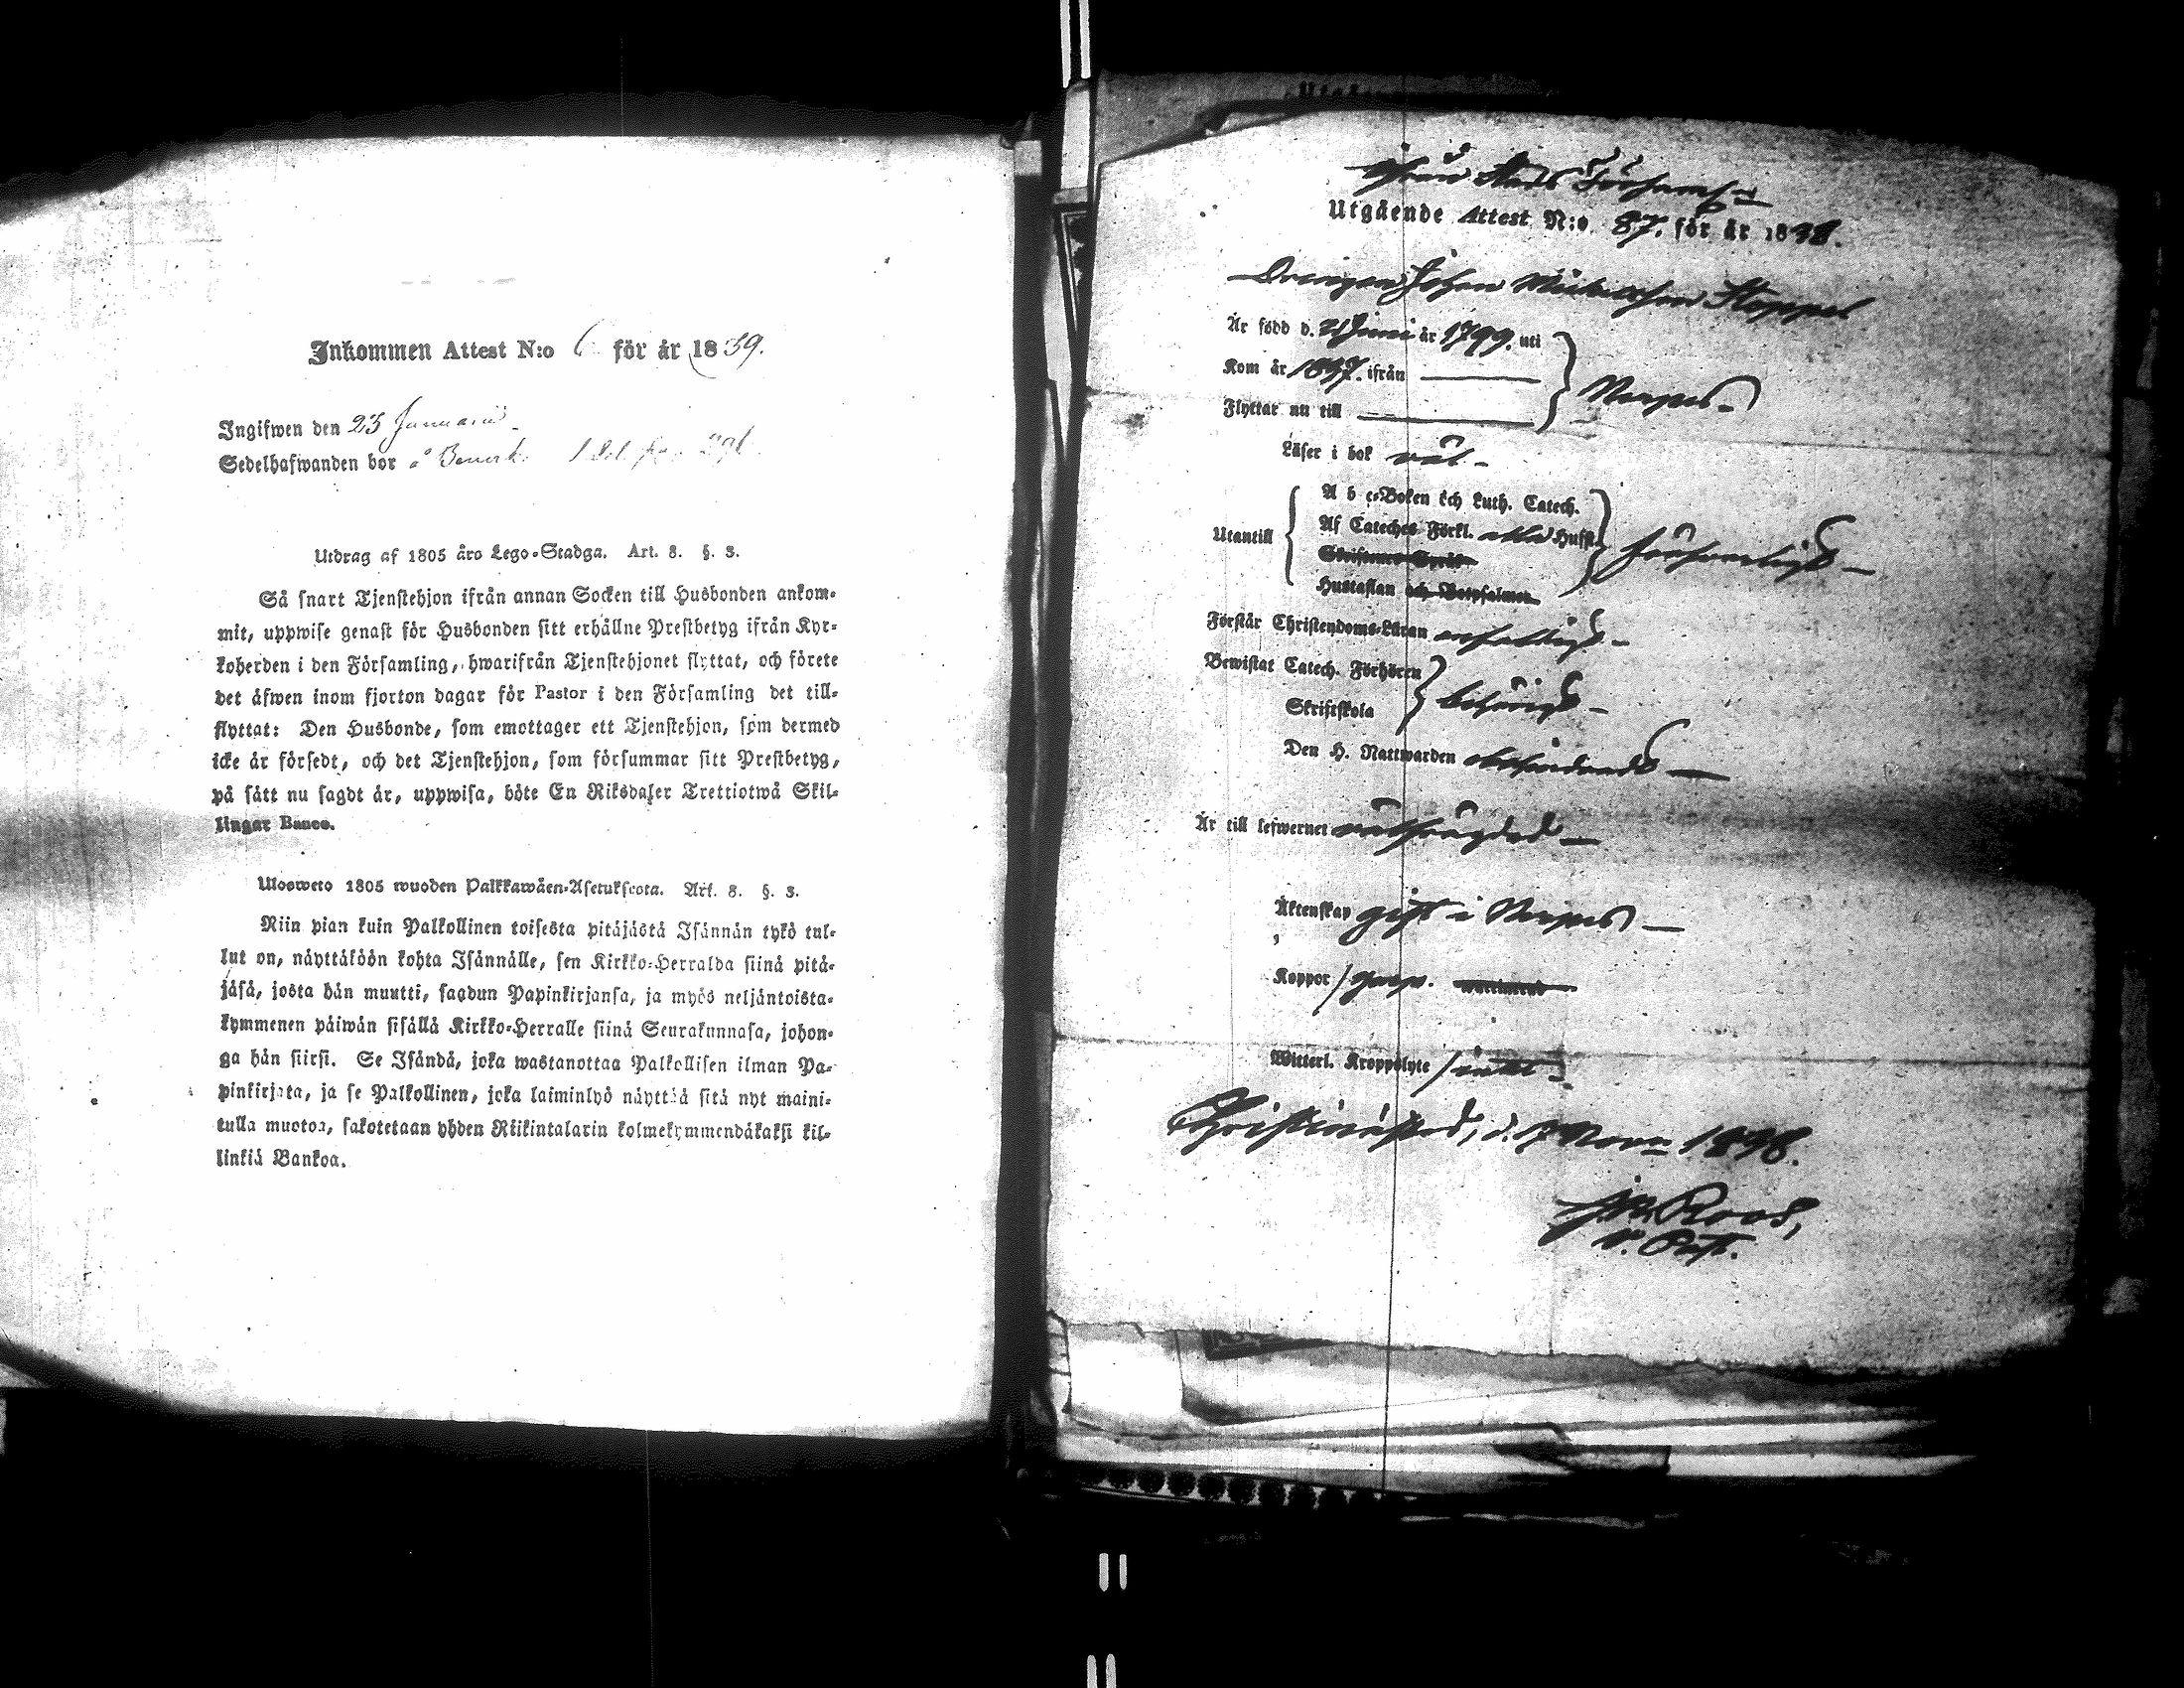 Inkommen Attest N:o 6 för år 1839.
Ingifwen den 23 Januarii
Sedelhafwanden bor å Benvik
Utdrag af 1805 års Lego-Stadga. Art. 8. §. 3.
Så snart Tjenstehjon ifrån annan Socken till Husbonden ankom-
mit, uppwise genast för Husbonden sitt erhållne Prestbetyg ifrån Kyr-
koherden i den Församling, hwarifrån Tjenstehjonet flyttat, och förete
det äfwen inom fjorton dagar för Pastor i den Församling det till-
flyttat: Den Husbonde, som emottager ett Tjenstehjon, som dermed
icke är försedt, och det Tjenstehjon, som försummar sitt Prestbetyg,
på sätt nu sagdt är, uppwisa, böte En Riksdaler Trettiotwå Skil-
lingar Banco.
Ulosweto 1805 wuoden Palkkawäen-Asetuksesta. Art. 8. §. 3.
Niin pian kuin Palkollinen toisesta pitäjästä Isännän tykö tul-
lut on, näyttäköön kohta Isännälle, sen Kirkko-Herralda siinä pitä-
jäsä, josta hän muutti, saadun Papinkirjansa, ja myös neljäntoista-
kymmenen päiwän sisällä Kirkko-Herralle siinä Seurakunnasa, johon-
ga hän siirsi. Se Isändä, joka wastanottaa Palkollisen ilman Pa-
pinkirjata, ja se Palkollinen, joka laiminlyö näyttää sitä nyt maini-
tulla muotoa, sakotetaan yhden Riikintalarin kolmekymmendäkaksi kil-
linkiä Bankoa.
ifrån Stads Församl:
Utgående Attest N:o 87. för år 1838.
Drengen Johan Mickelsson Stoppel
Är född d. 21 Junii år 1799. uti
Kom år 1837. ifrån
Flyttar nu till
Nerpes
Läser i bok väl
Utantill
A b c-Boken och Luth. Catech.
Af Cateches Förkl. Hufst.
Skriftenes Språk
Hustaflan och Botpsalmer
försvarligt
Förstår Christendoms-Läran enfaldigt
Bewistat Catech. Förhören
Skriftskola
behörigt
Den H. Nattwarden
Är till lefwernet välfrägdad
Äktenskap gift i Nerpes
Koppor haft. waccinerad
Witterl. Kroppslyte intet
Christinestad, d. 17 Nov: 1838.
Roos,
V. Past.